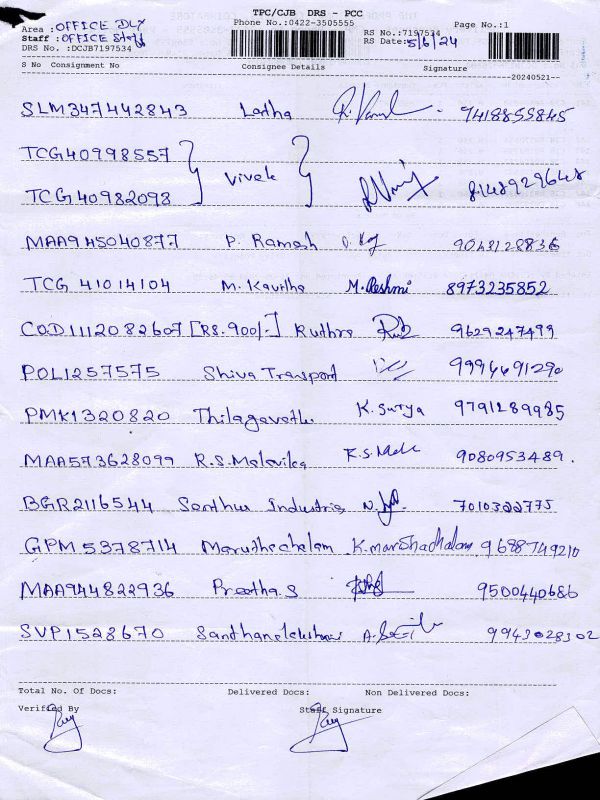 TPC/CJB DRS - PCC
Phone No.:0422-3505555
Page No.:1
Area : OFFICE DLY
Staff : OFFICE Staff
DRS No. :DCJB7197534
RS No.:7197534
RS Date: 5/6/24
S No Consignment No Consignee Details Signature
20240521
SLM347442843 Latha 9418855845
TCG40998557
TCG40982098 Vivek 8148929648
MAA945040877 P. Ramesh 9043128836
TCG 41014104 M. Kavitha M. Reshmi 8973235852
COD1112082607 [RS. 900/-] Ruthra 9629247499
POL1257575 Shiva Transport 9994691290
PMK1320820 Thilagavathi K. Surya 9791289985
MAA573628099 R.S. Malavika 9080953489.
BGR2116544 Santhus Industries 7010322775
GPM5378714 Maruthachalam 9688749210
MAA944822936 Preetha.S 9500440686
SVP1528670 9943028302
Total No. Of Docs: Delivered Docs: Non Delivered Docs:
Verified By Staff Signature